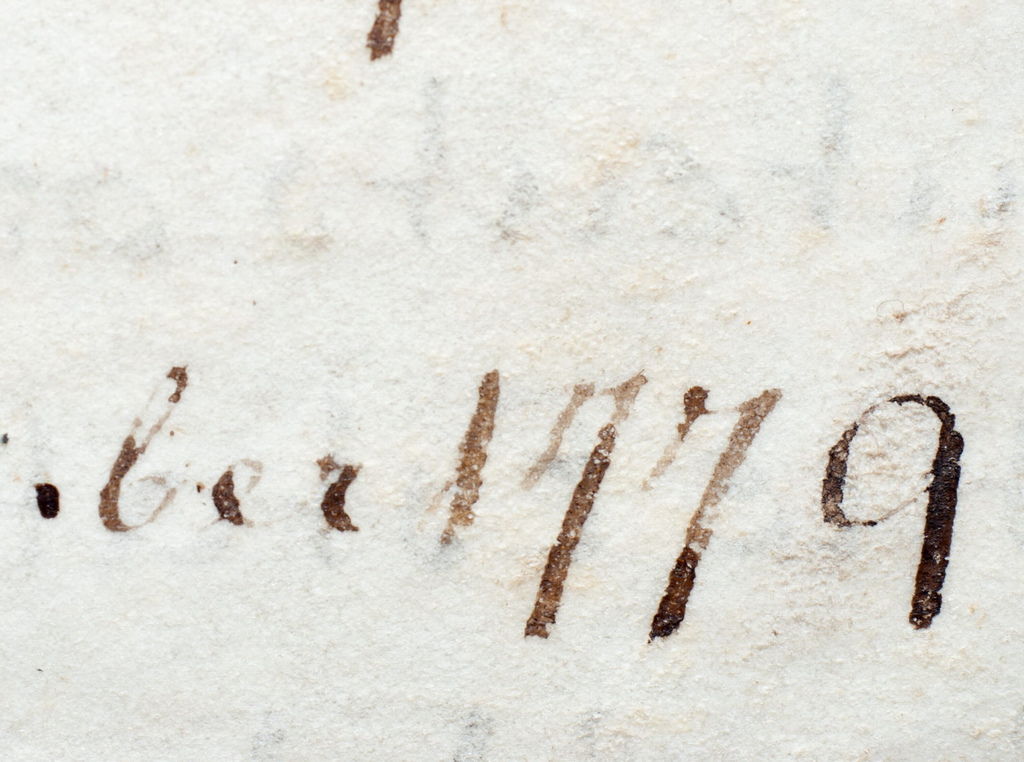 ber 1779